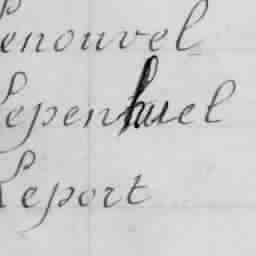 Lenouvel
Lepenhuel
Leport